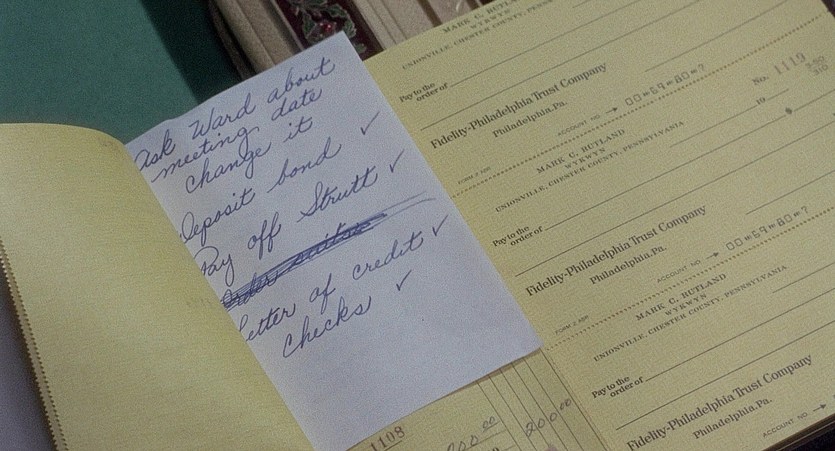 Ask Ward about
meeting date
change it
Deposit bond ✓
Pay off Strutt ✓
Letter of credit ✓
checks ✓
1108
200 00
MARK C. RUTLAND
WYKWYN
UNIONVILLE, CHESTER COUNTY, PENNSYLVANIA
Pay to the
order of
Fidelity-Philadelphia Trust Company
Philadelphia, Pa.
ACCOUNT NO. → 00=69=80=?
No. 1119
MARK C. RUTLAND
WYKWYN
UNIONVILLE, CHESTER COUNTY, PENNSYLVANIA
Pay to the
order of
$
Fidelity-Philadelphia Trust Company
Philadelphia, Pa.
ACCOUNT NO. → 00=69=80=?
MARK C. RUTLAND
WYKWYN
UNIONVILLE, CHESTER COUNTY, PENNSYLVANIA
Pay to the
order of
Fidelity-Philadelphia Trust Company
Philadelphia, Pa.
ACCOUNT NO. →